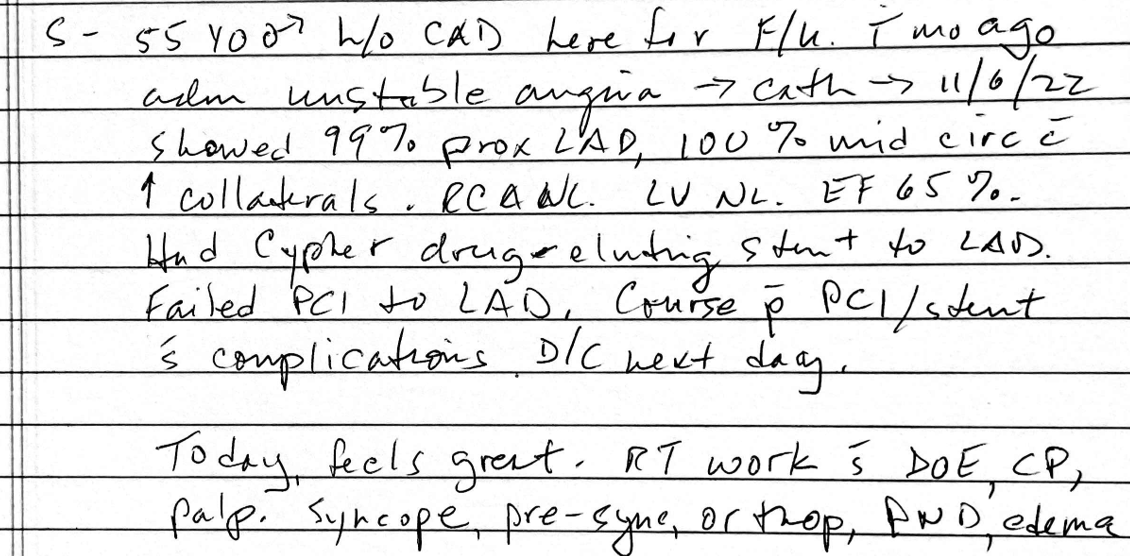 S - 55 YO ♂ h/o CAD here for F/u. ī mo ago
adm unstable angina → cath → 11/6/22
showed 99% prox LAD, 100% mid circ c̄
↑ collaterals. RCA NL. LV NL. EF 65%.
Had Cypher drug-eluting stent to LAD.
Failed PCI to LAD. Course p̄ PCI/stent
s̄ complications. D/C next day.
Today, feels great. RT work s̄ DOE, CP,
palp. Syncope, pre-sync, orthop, PND, edema